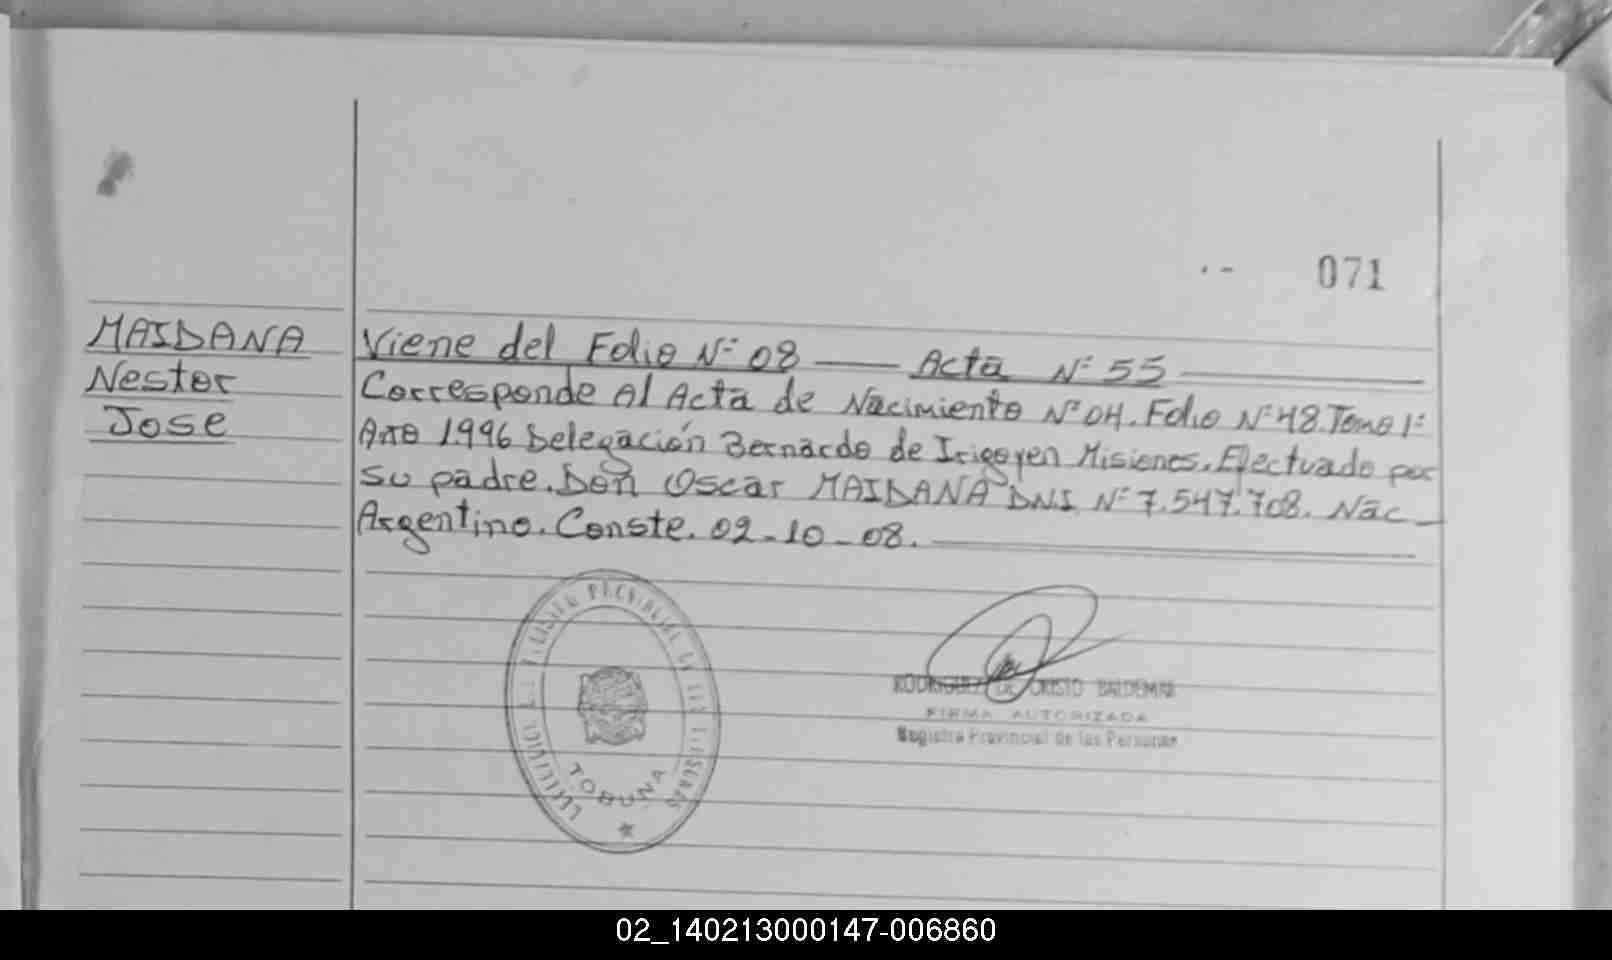 071
MAIDANA
Nestor
Jose
Viene del Folio Nº 08 —— Acta Nº 55
Corresponde Al Acta de Nacimiento Nº 04. Folio Nº 48. Tomo 1º
Año 1.996 Delegación Bernardo de Irigoyen Misiones. Efectuado por
su padre. Don Oscar MAIDANA D.N.I. Nº 7.547.708. Nac_
Argentino. Conste. 02-10-08.
REGISTRO PROVINCIAL DE LAS PERSONAS
TOBUNA
RODRIGUEZ DE CRISTO BALDEMAR
FIRMA AUTORIZADA
Registro Provincial de las Personas
02_140213000147-006860